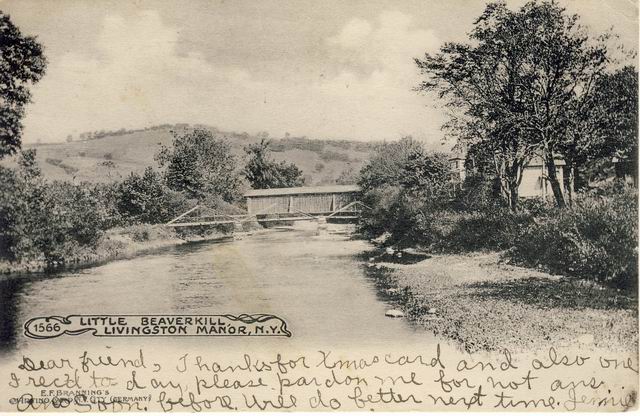 1566
LITTLE BEAVERKILL
LIVINGSTON MANOR, N.Y.
Dear friend, Thanks for Xmas card and also one
I rec'd to day, please pardon me for not ans.
E.F. BRANNING'S
N.Y. CITY (GERMANY)
before Will do better next time. Jennie